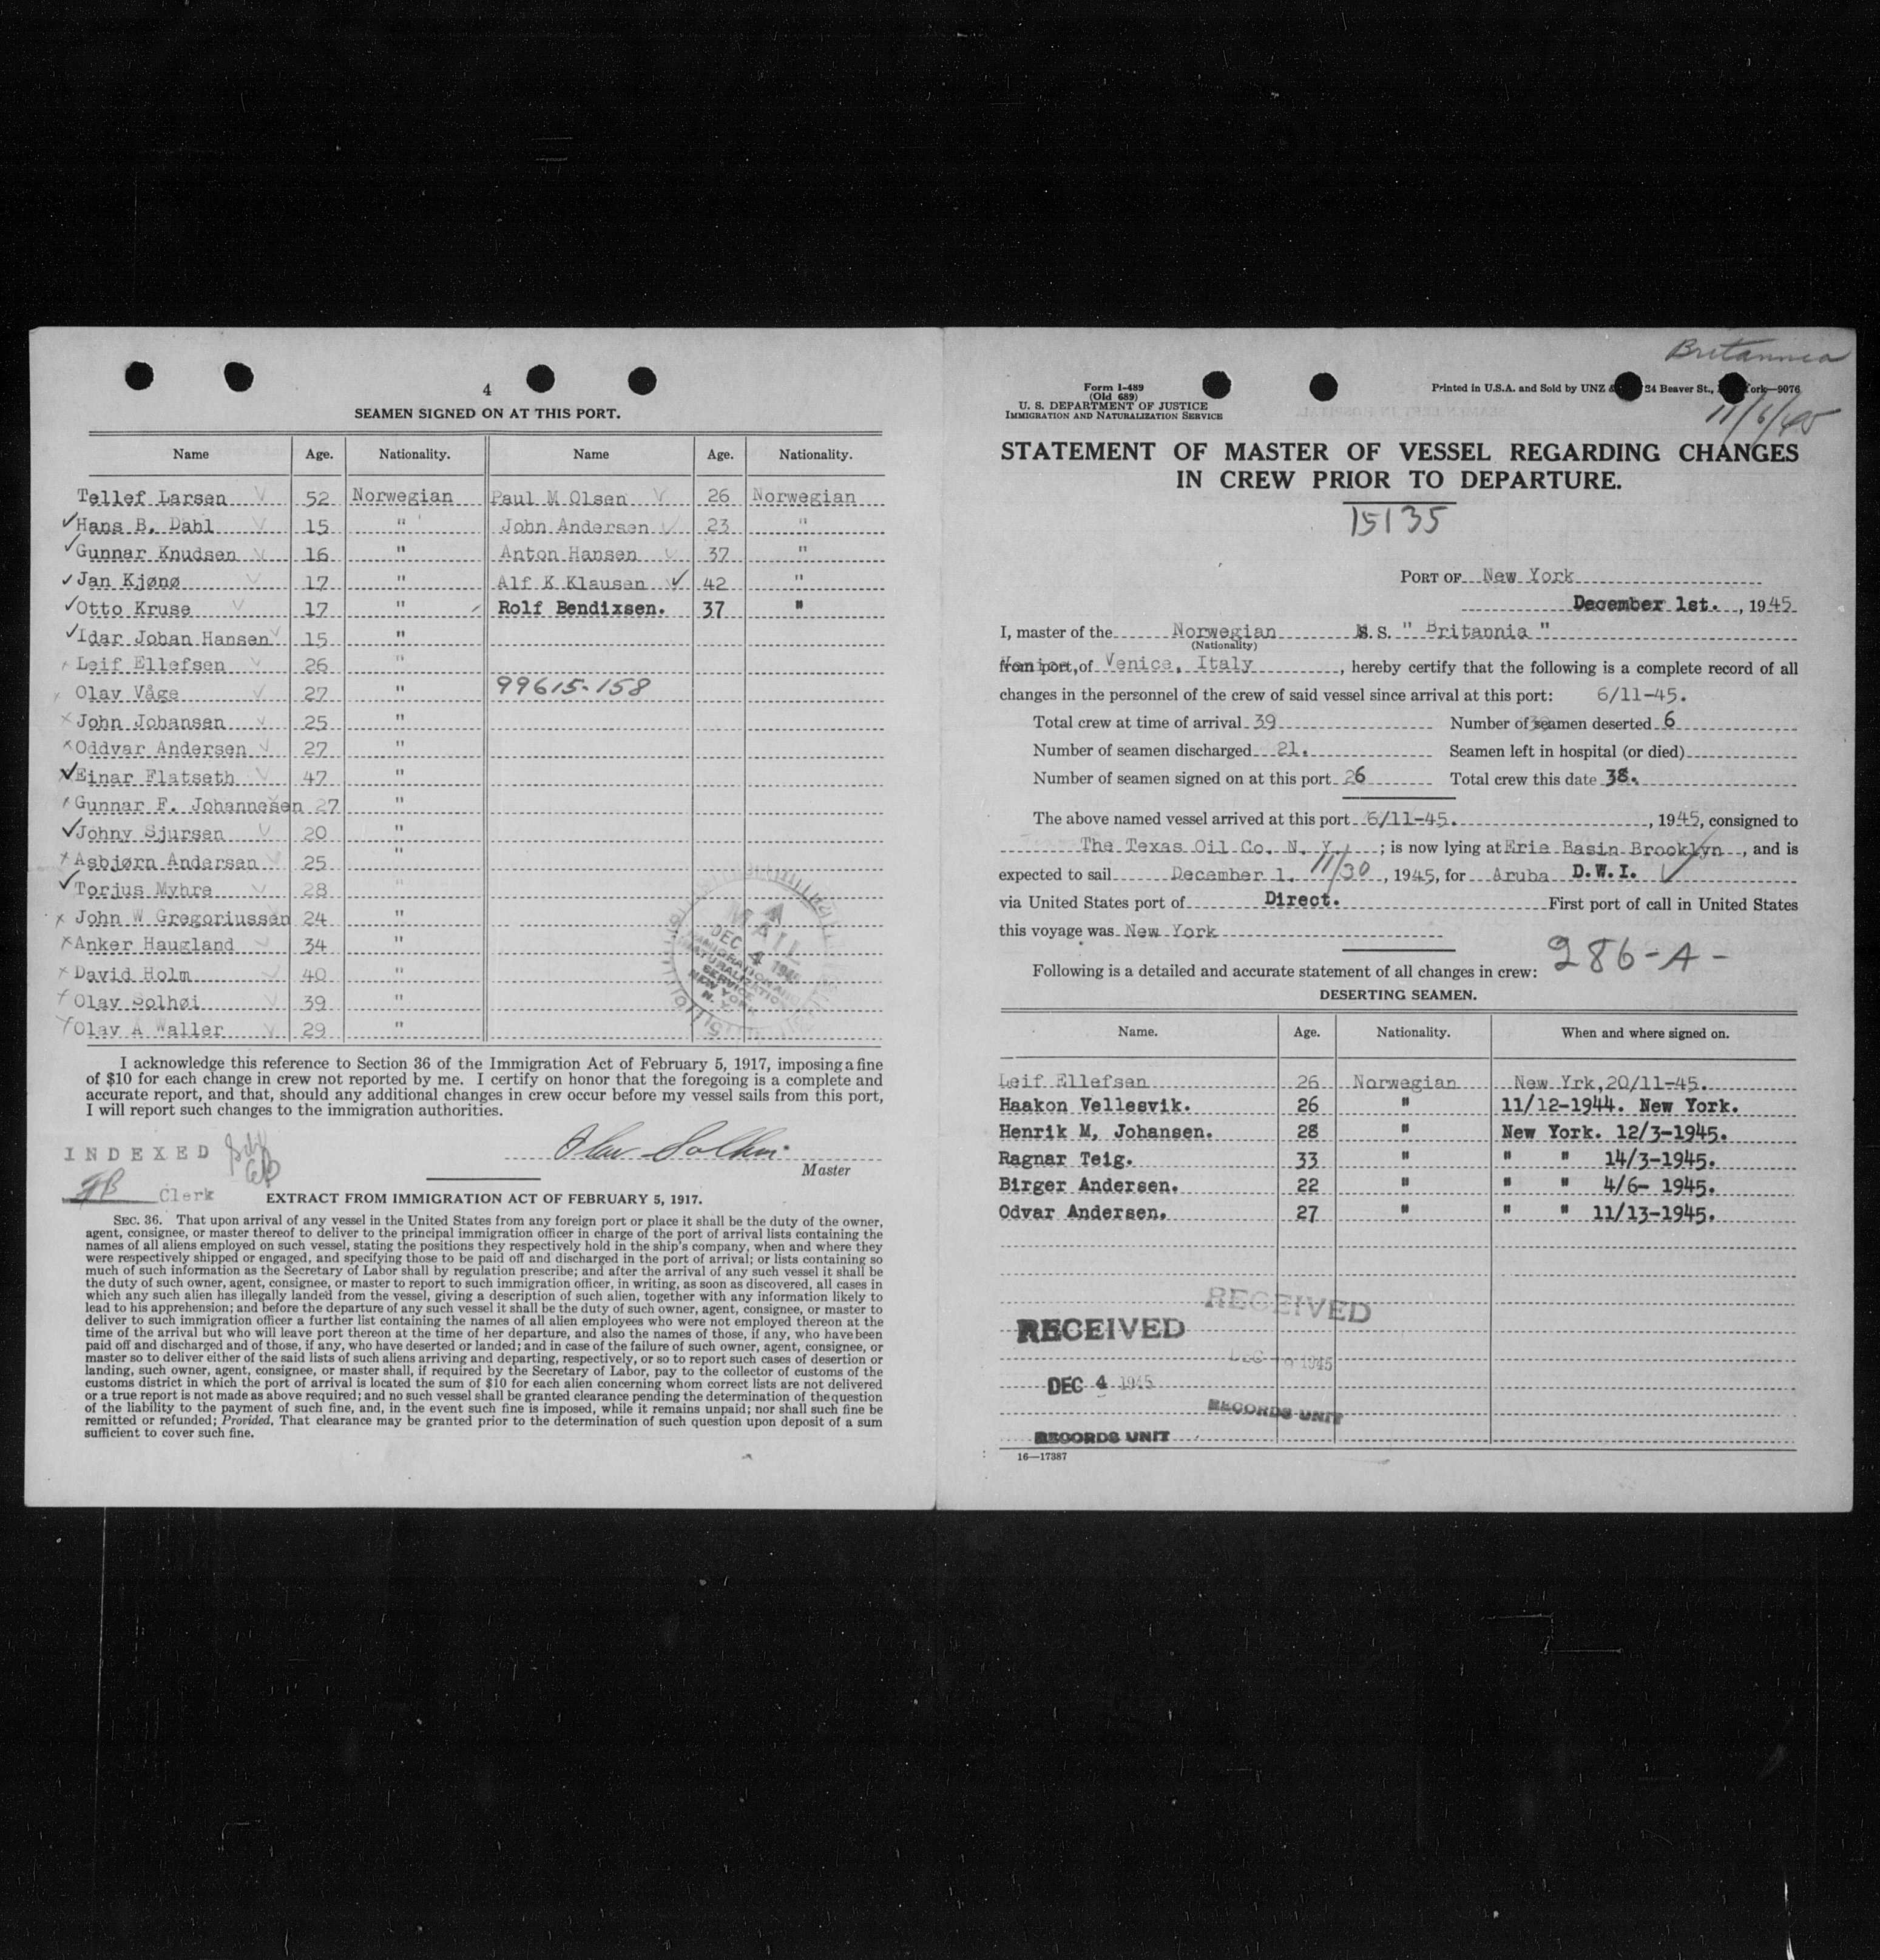 4
SEAMEN SIGNED ON AT THIS PORT.
Name Age. Nationality. Name Age. Nationality.
Tellef Larsen 52 Norwegian Paul M Olsen 26 Norwegian
Hans B. Dahl 15 " John Andersen 23 "
Gunnar Knudsen 16 " Anton Hansen 37 "
Jan Kjønø 17 " Alf K Klausen 42 "
Otto Kruse 17 " Rolf Bendixsen. 37 "
Idar Johan Hansen 15 "
Leif Ellefsen 26 "
Olav Våge 27 " 99615-158
John Johansen 25 "
Oddvar Andersen 27 "
Einar Flatseth 47 "
Gunnar F. Johannesen 27 "
Johny Sjursen 20 "
Asbjørn Andersen 25 "
Torjus Myhre 28 "
John W Gregoriussen 24 "
Anker Haugland 34 "
David Holm 40 "
Olav Solhøi 39 "
Olav A Waller 29 "
MAIL
DEC 4 1945
IMMIGRATION AND
NATURALIZATION
SERVICE
NEW YORK
N. Y.
I acknowledge this reference to Section 36 of the Immigration Act of February 5, 1917, imposing a fine
of $10 for each change in crew not reported by me. I certify on honor that the foregoing is a complete and
accurate report, and that, should any additional changes in crew occur before my vessel sails from this port,
I will report such changes to the immigration authorities.
INDEXED
Olav Solhøi
Master
Clerk
EXTRACT FROM IMMIGRATION ACT OF FEBRUARY 5, 1917.
SEC. 36. That upon arrival of any vessel in the United States from any foreign port or place it shall be the duty of the owner,
agent, consignee, or master thereof to deliver to the principal immigration officer in charge of the port of arrival lists containing the
names of all aliens employed on such vessel, stating the positions they respectively hold in the ship's company, when and where they
were respectively shipped or engaged, and specifying those to be paid off and discharged in the port of arrival; or lists containing so
much of such information as the Secretary of Labor shall by regulation prescribe; and after the arrival of any such vessel it shall be
the duty of such owner, agent, consignee, or master to report to such immigration officer, in writing, as soon as discovered, all cases in
which any such alien has illegally landed from the vessel, giving a description of such alien, together with any information likely to
lead to his apprehension; and before the departure of any such vessel it shall be the duty of such owner, agent, consignee, or master to
deliver to such immigration officer a further list containing the names of all alien employees who were not employed thereon at the
time of the arrival but who will leave port thereon at the time of her departure, and also the names of those, if any, who have been
paid off and discharged and of those, if any, who have deserted or landed; and in case of the failure of such owner, agent, consignee, or
master so to deliver either of the said lists of such aliens arriving and departing, respectively, or so to report such cases of desertion or
landing, such owner, agent, consignee, or master shall, if required by the Secretary of Labor, pay to the collector of customs of the
customs district in which the port of arrival is located the sum of $10 for each alien concerning whom correct lists are not delivered
or a true report is not made as above required; and no such vessel shall be granted clearance pending the determination of the question
of the liability to the payment of such fine, and, in the event such fine is imposed, while it remains unpaid; nor shall such fine be
remitted or refunded; Provided, That clearance may be granted prior to the determination of such question upon deposit of a sum
sufficient to cover such fine.
Britannia
11/6/45
Form I-489
(Old 689)
U. S. DEPARTMENT OF JUSTICE
IMMIGRATION AND NATURALIZATION SERVICE
Printed in U.S.A. and Sold by UNZ & 24 Beaver St., York—9076
STATEMENT OF MASTER OF VESSEL REGARDING CHANGES
IN CREW PRIOR TO DEPARTURE.
15135
PORT OF New York
December 1st. , 1945
I, master of the Norwegian M. S. " Britannia "
(Nationality)
from port of Venice, Italy , hereby certify that the following is a complete record of all
changes in the personnel of the crew of said vessel since arrival at this port: 6/11-45.
Total crew at time of arrival 39 Number of seamen deserted 6
Number of seamen discharged 21. Seamen left in hospital (or died)
Number of seamen signed on at this port 26 Total crew this date 38.
The above named vessel arrived at this port 6/11-45. , 1945, consigned to
The Texas Oil Co. N. Y. ; is now lying at Erie Basin Brooklyn , and is
expected to sail December 1. 11/30 , 1945, for Aruba D.W.I.
via United States port of Direct. First port of call in United States
this voyage was New York
Following is a detailed and accurate statement of all changes in crew: 286-A-
DESERTING SEAMEN.
Name. Age. Nationality. When and where signed on.
Leif Ellefsen 26 Norwegian New Yrk, 20/11-45.
Haakon Vellesvik. 26 " 11/12-1944. New York.
Henrik M, Johansen. 28 " New York. 12/3-1945.
Ragnar Teig. 33 " " " 14/3-1945.
Birger Andersen. 22 " " " 4/6- 1945.
Odvar Andersen. 27 " " " 11/13-1945.
RECEIVED
DEC 1945
RECORDS UNIT
RECEIVED
DEC 4 1945
RECORDS UNIT
16—17387